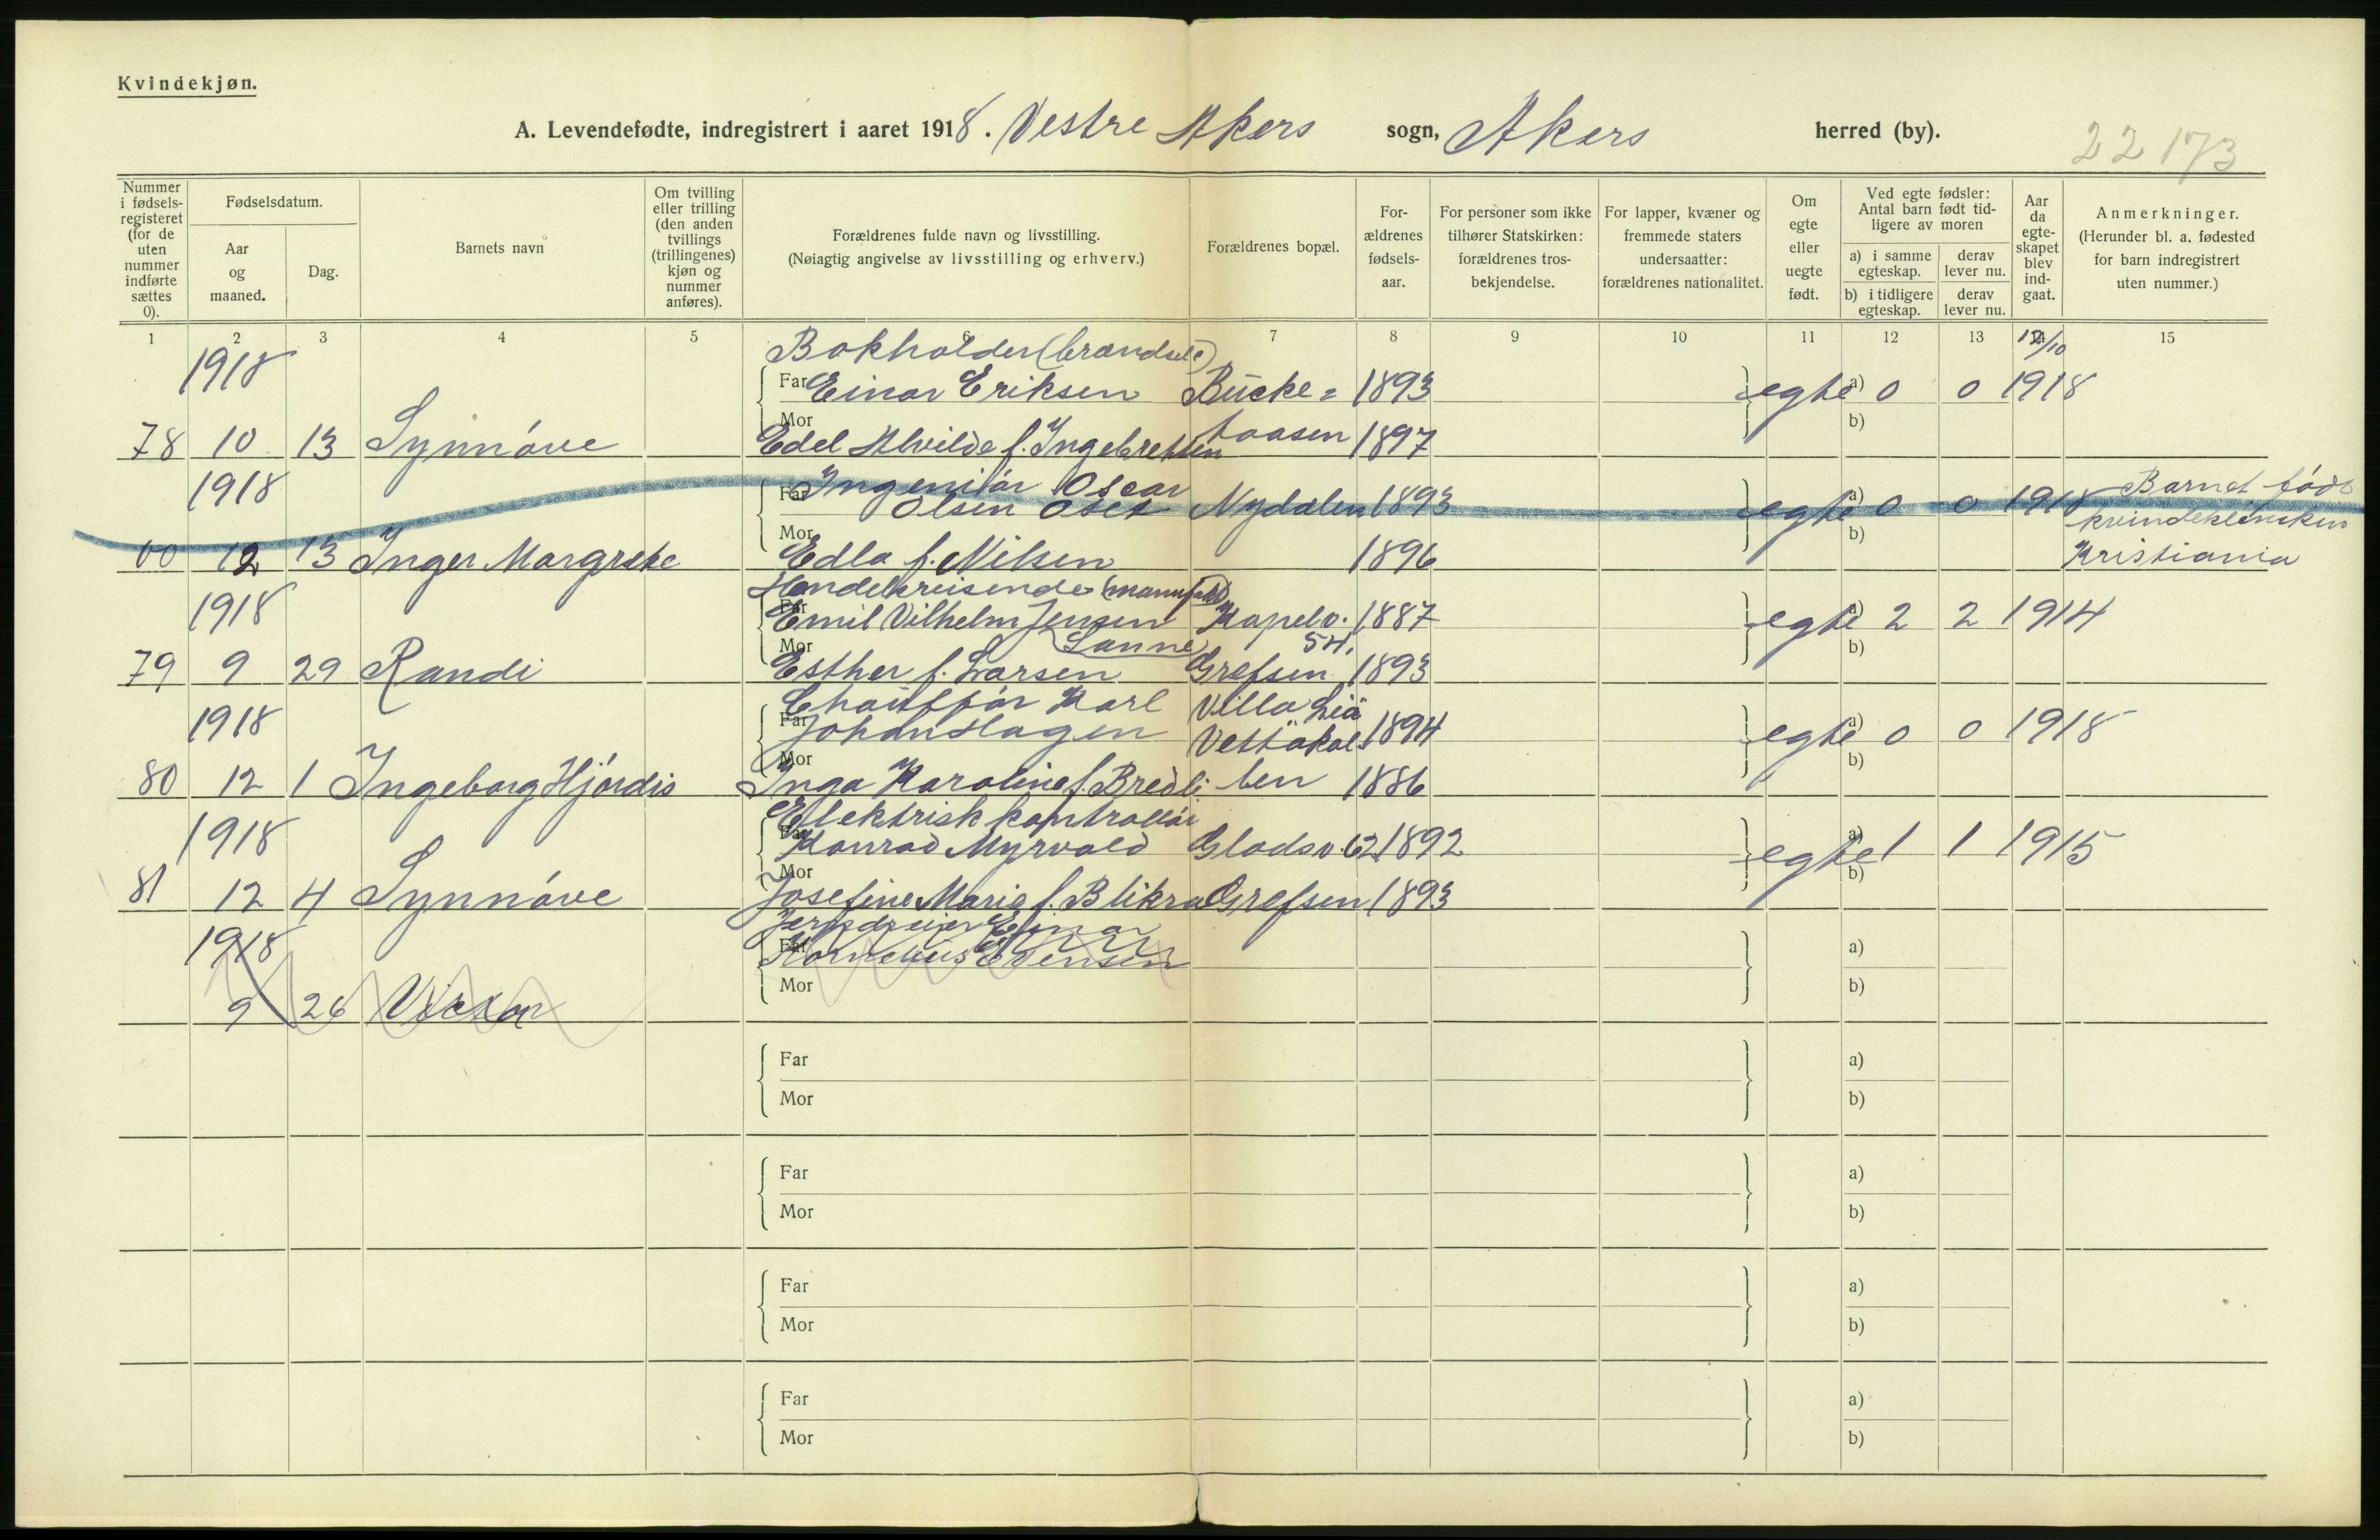 Kvindekjøn.
A. Levendefødte, indregistrert i aaret 1918. Vestre Akers sogn, Akers herred (by).
22 173
Nummer i fødsels-registeret (for de uten nummer indførte sættes 0).
Fødselsdatum.
Aar og maaned.
Dag.
Barnets navn
Om tvilling eller trilling (den anden tvillings (trillingenes) kjøn og nummer anføres).
Forældrenes fulde navn og livsstilling.
(Nøiagtig angivelse av livsstilling og erhverv.)
Forældrenes bopæl.
For-ældrenes fødsels-aar.
For personer som ikke tilhører Statskirken: forældrenes tros-bekjendelse.
For lapper, kvæner og fremmede staters undersaatter: forældrenes nationalitet.
Om egte eller uegte født.
Ved egte fødsler: Antal barn født tid-ligere av moren
a) i samme egteskap.
derav lever nu.
b) i tidligere egteskap.
derav lever nu.
Aar da egte-skapet blev ind-gaat.
Anmerkninger.
(Herunder bl. a. fødested for barn indregistrert uten nummer.)
1 2 3 4 5 6 7 8 9 10 11 12 13 15
1918 Bokholder (brændsel) 12/10
Far Einar Eriksen Bücke= 1893 egte a) 0 0 1918
78 10 13 Synnóve Mor Edel Alvilde f. Ingebretsen haasen 1897 b)
1918 Far Ingeniór Oscar Olsen Oset Nydalen 1893 egte a) 0 0 1918 Barnet født kvindeklinikken Kristiania
00 12 13 Inger Margrete Mor Edla f. Nilsen 1896 b)
1918 Handelsreisende (manufakt)
Far Emil Vilhelm Jensen Kapelv. 1887 egte a) 2 2 1914
Sanne 54,
79 9 29 Randi Mor Esther f. Larsen Grefsen 1893 b)
1918 Chaufför Karl Villa Liä
Far Johan Hagen Vettakol= 1894 egte a) 0 0 1918
80 12 1 Ingeborg Hjórdis Mor Inga Karoline f. Bredli ben 1886 b)
1918 Elektrisk kontrollór
Far Konrad Myrvold Gladsv. 62 1892 egte a) 1 1 1915
81 12 4 Synnóve Mor Josefine Marie f. Blikra Grefsen 1893 b)
1918 Jerndreier Einar
Far Kornelius Evensen a)
9 26 Victor Mor b)
Far a)
Mor b)
Far a)
Mor b)
Far a)
Mor b)
Far a)
Mor b)